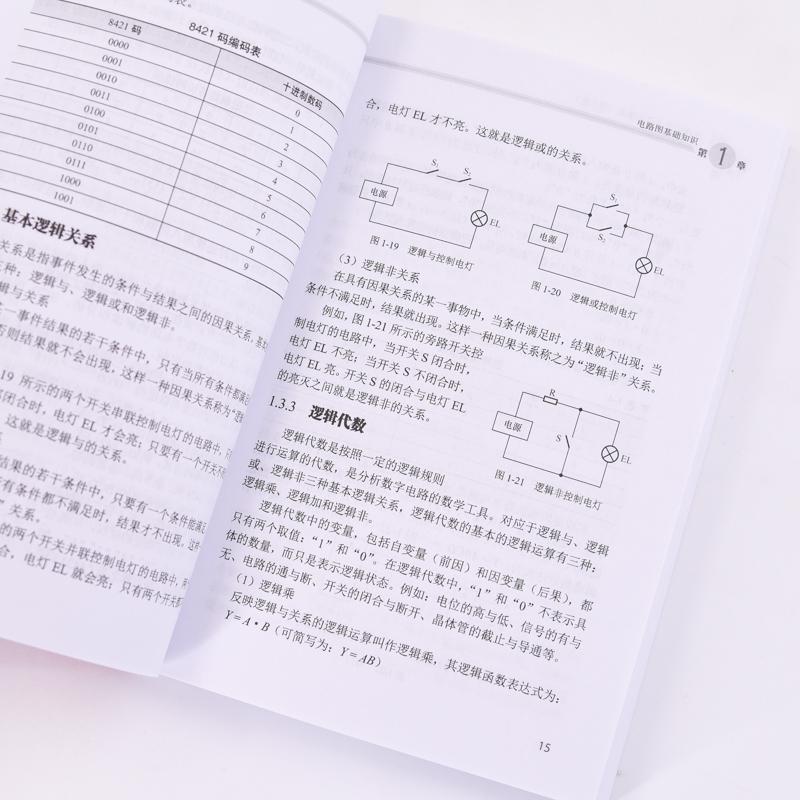 表。
8421 码编码表
8421 码
十进制数码
0000
0
0001
1
0010
2
0011
3
0100
4
0101
5
0110
6
0111
7
1000
8
1001
9
基本逻辑关系
关系是指事件发生的条件与结果之间的因果关系,
三种:逻辑与、逻辑或和逻辑非。
辑与关系
某一事件结果的若干条件中,只有当所有条件都满
否则结果就不会出现,这样一种因果关系称为“逻
19 所示的两个开关串联控制电灯的电路中,
都闭合时,电灯 EL 才会亮;只要有一个开关不
。这就是逻辑与的关系。
结果的若干条件中,只要有一个条件能满
有条件都不满足时,结果才不出现,这样
”关系。
的两个开关并联控制电灯的电路中,
合,电灯 EL 就会亮;只有两个开关
电路图基础知识
第 1 章
合,电灯 EL 才不亮。这就是逻辑或的关系。
S₁
S₂
电源
EL
图 1-19 逻辑与控制电灯
S₁
S₂
电源
EL
图 1-20 逻辑或控制电灯
(3)逻辑非关系
在具有因果关系的某一事物中,当条件满足时,结果就不出现;当
条件不满足时,结果就出现。这样一种因果关系称之为“逻辑非”关系。
例如,图 1-21 所示的旁路开关控
制电灯的电路中,当开关 S 闭合时,
电灯 EL 不亮;当开关 S 不闭合时,
电灯 EL 亮。开关 S 的闭合与电灯 EL
的亮灭之间就是逻辑非的关系。
R
电源
S
EL
图 1-21 逻辑非控制电灯
1.3.3 逻辑代数
逻辑代数是按照一定的逻辑规则
进行运算的代数,是分析数字电路的数学工具。对应于逻辑与、逻辑
或、逻辑非三种基本逻辑关系,逻辑代数的基本的逻辑运算有三种:
逻辑乘、逻辑加和逻辑非。
逻辑代数中的变量,包括自变量(前因)和因变量(后果),都
只有两个取值:“1”和“0”。在逻辑代数中,“1”和“0”不表示具
体的数量,而只是表示逻辑状态。例如:电位的高与低、信号的有与
无、电路的通与断、开关的闭合与断开、晶体管的截止与导通等。
(1)逻辑乘
反映逻辑与关系的逻辑运算叫作逻辑乘,其逻辑函数表达式为:
Y = A • B(可简写为:Y = AB)
15